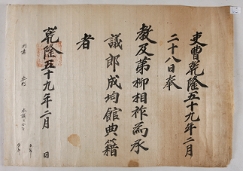 吏曹乾隆五十九年二月
二十八日奉
教及第柳相祚爲承
議郎成均館典籍
者
乾隆五十九年二月　日